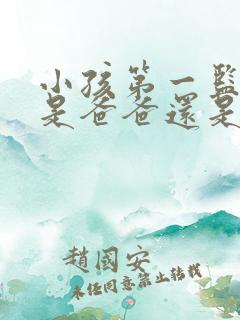 小孩第一監
是爸爸還是
趙國安
未經同意禁止轉載